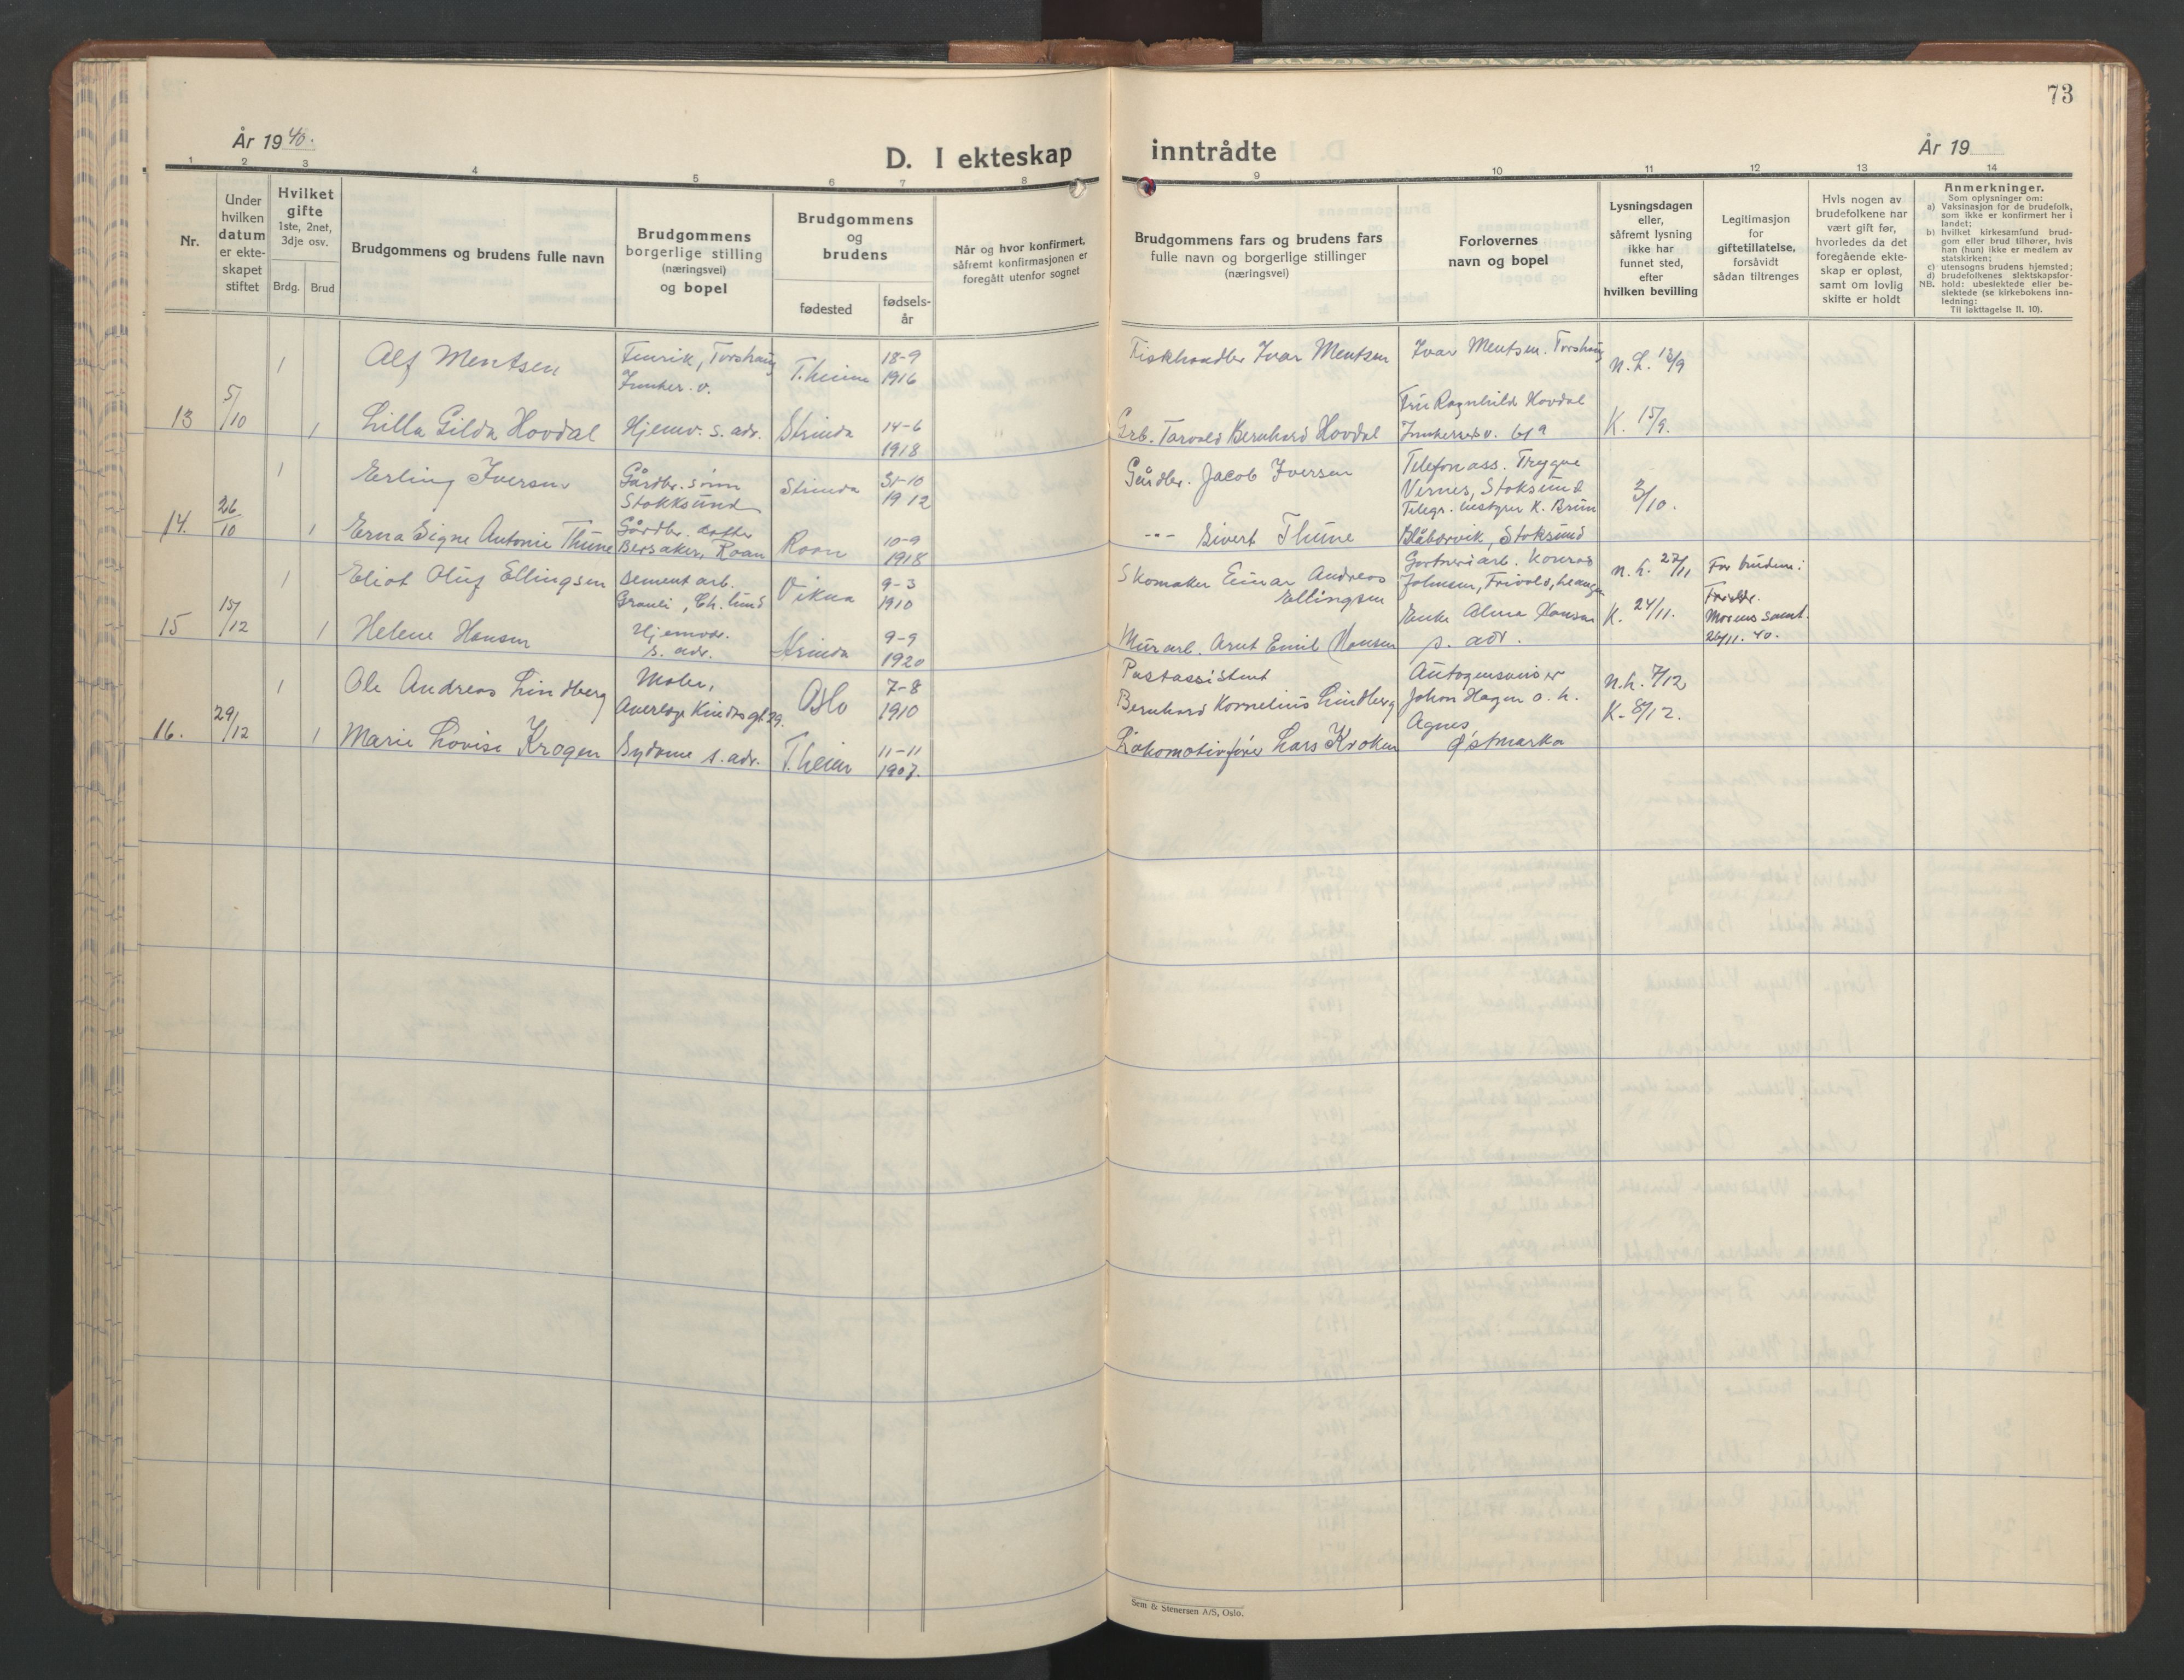 73
År 1940.
D. I ekteskap inntrådte
År 19
1 2 3 4 5 6 7 8 9 10 11 12 13 14
Nr.
Under hvilken datum er ekteskapet stiftet
Hvilket gifte 1ste, 2net, 3dje osv.
Brdg. Brud
Brudgommens og brudens fulle navn
Brudgommens borgerlige stilling (næringsvei) og bopel
Brudgommens og brudens
fødested
fødsels-år
Når og hvor konfirmert, såfremt konfirmasjonen er foregått utenfor sognet
Brudgommens fars og brudens fars fulle navn og borgerlige stillinger (næringsvei)
Forlovernes navn og bopel
Lysningsdagen eller, såfremt lysning ikke har funnet sted, efter hvilken bevilling
Legitimasjon for giftetillatelse, forsåvidt sådan tiltrenges
Hvis nogen av brudefolkene har vært gift før, hvorledes da det foregående ekteskap er opløst, samt om lovlig skifte er holdt
Anmerkninger.
Som oplysninger om:
a) Vaksinasjon for de brudefolk, som ikke er konfirmert her i landet;
b) hvilket kirkesamfund brudgom eller brud tilhører, hvis han (hun) ikke er medlem av statskirken;
c) utensogns brudens hjemsted;
d) brudefolkenes slektskapsforhold: ubeslektede eller beslektede (se kirkebokens innledning:
NB.
Til iakttagelse II. 10).
13 5/10
1 Alf Mentsen Fenrik, Torshaug Junker. v. T.heim 18-9 1916 Fiskhandler Ivar Mentsen Ivar Mentsen. Torshaug N.L. 12/9
1 Lilla Gilda Hovdal Hjemv. s. adr. Strinda 14-6 1918 Grb. Torvald Bernhard Hovdal Fru Ragnhild Hovdal K. 15/9.
14. 26/10
1 Erling Iversen Gårdbr. sønn Stokksund Strinda 31-10 1912 Gårdbr. Jacob Iversen Telefonass. Trygve Vernes, Stoksund 3/10.
1 Erna Signe Antonie Thune Gårdbr. datter Bersaker, Roan Roan 10-9 1918 -"- Sivert Thune Telegr. bestyrer K. Bruun Blåbærvik, Stoksund
15 15/12
1 Eliot Oluf Ellingsen Sement arb. Granli, Ch. lund Vikna 9-3 1910 Skomaker Einar Andreas Ellingsen Gartneriarb. Konrad Johnsen, Frivold, N.L. 27/11 For bruden:
1 Helene Hansen Hjemvær. s. adr. Strinda 9-9 1920 Murarb. Arnt Emil Hansen Enke Alma Hansen s. adr. K. 24/11. Morens samt. 26/11. 40.
16. 29/12
1 Ole Andreas Lindberg Maler, Oslo 7-8 1910 Postassistent Bernhard Kornelius Lindberg Autogensveiser Johan Hagen o. h. N.L. 7/12
1 Marie Lovise Krogen Sydame s. adr. T.heim 11-11 1907. Lokomotivfører Lars Kroken Agnes Østmarka K. 8/12.
Sem & Stenersen A/S, Oslo.